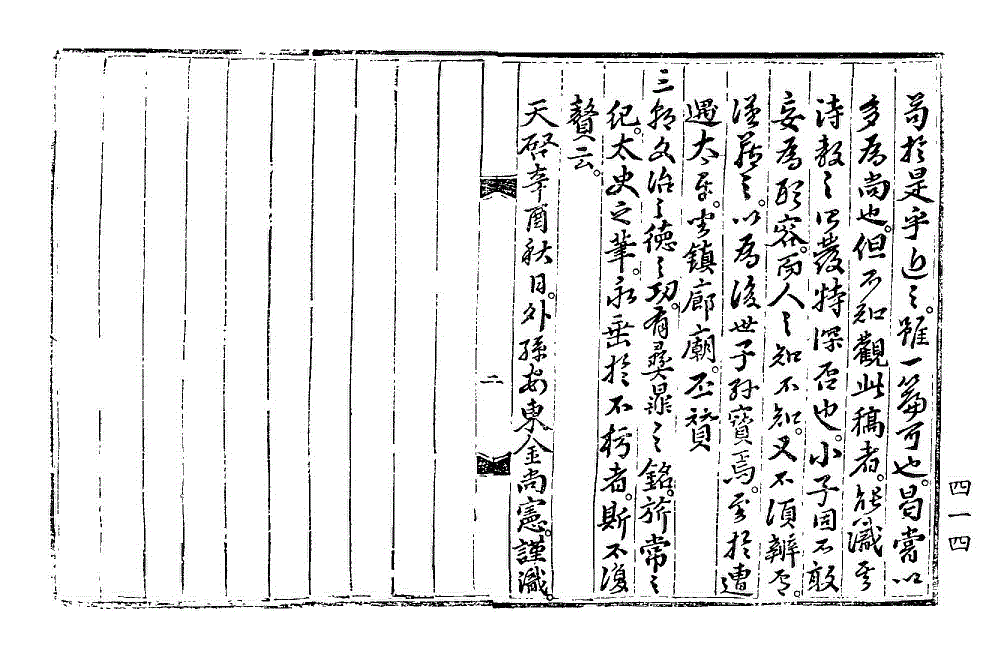 苟於是乎近之。雖一篇可也。曷嘗以
多為尚也。但不知觀此稿者。能識其
詩教之所發特深否也。小子固不敢
妄為形容。而人之知不知。又不須辨
謹藏之。以為後世子孫寶焉。至於遭
遇大君。鎮廊廟。丕贊
三朝文治之德之功。有彝鼎之銘。旂常之
紀。太史之筆。永垂於不朽者。斯不復
贅云。
天啓辛酉秋日。外孫安東金尚憲。謹識。
二
四一四